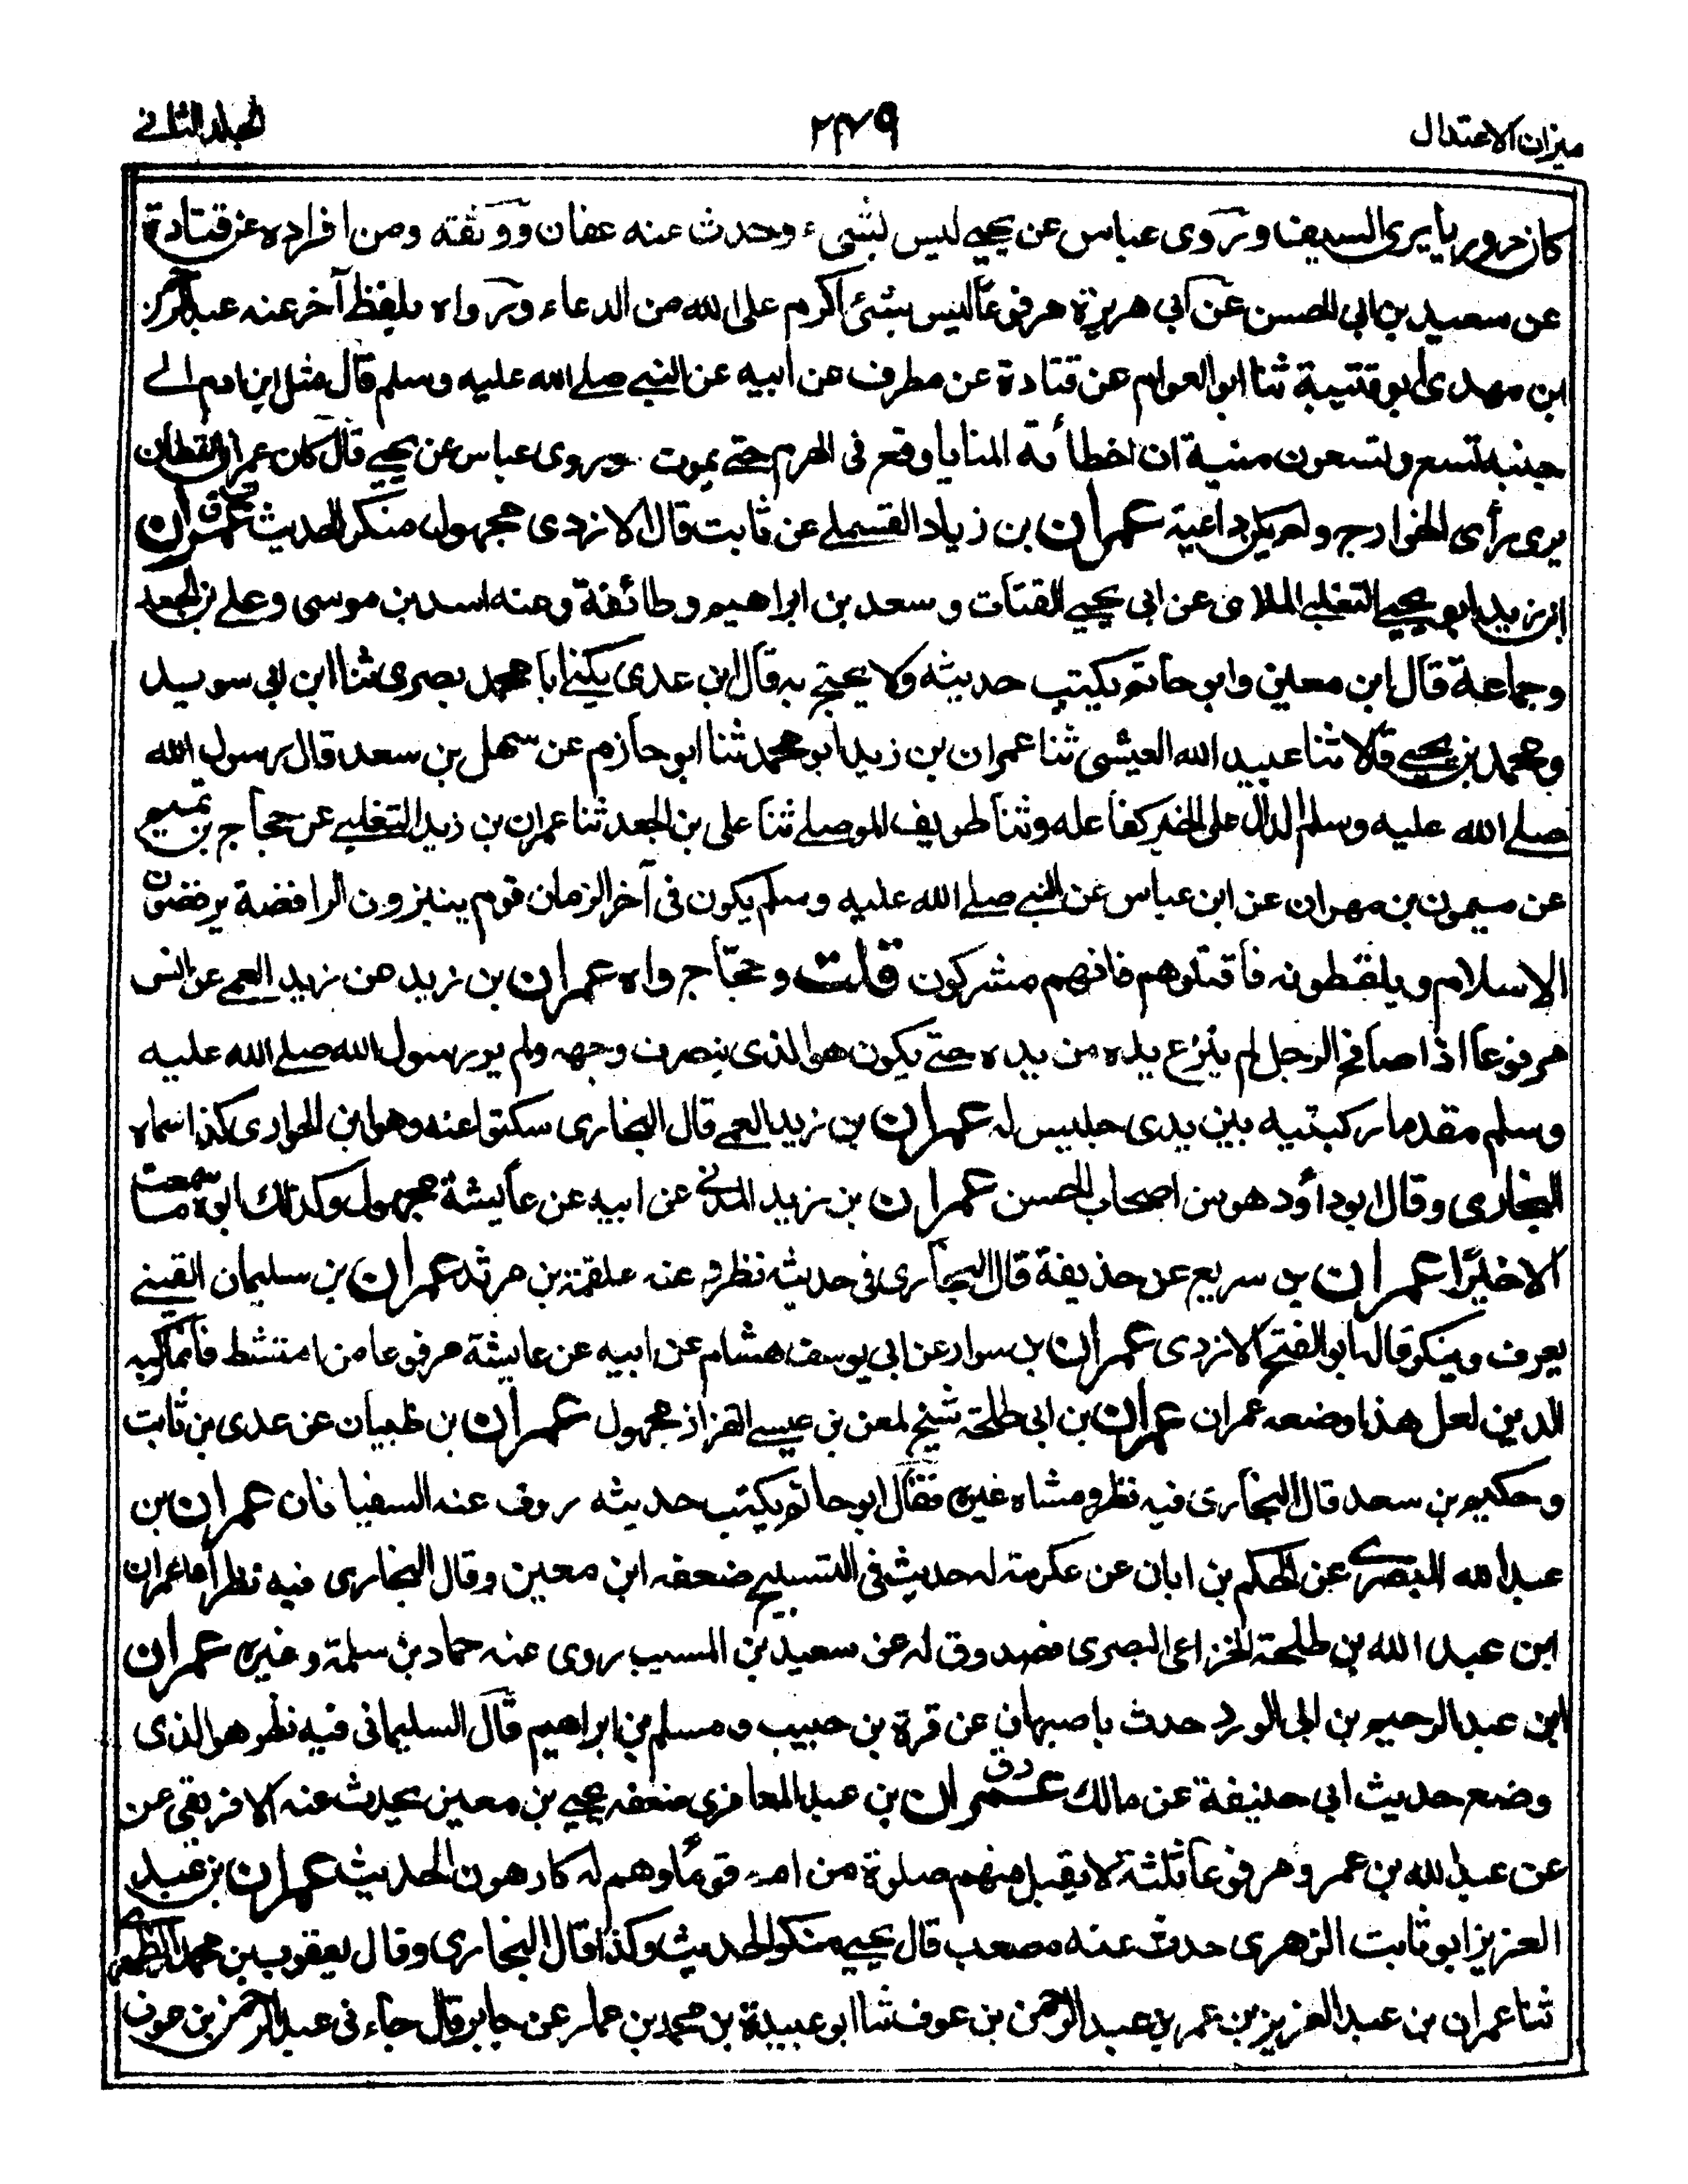 ميزان الاعتدال
٢٧٩
المجلد الثاني
كان حروريا يرى السيف وروى عباس عن يحيى ليس بشيء وحدث عنه عفان ووثقه ومن افراده عن قتادة
عن سعيد بن ابي الحسن عن ابي هريرة مرفوعا ليس شئ اكرم على الله من الدعاء ورواه بلفظ آخر عنه عبد الرحمن
ابن مهدى ابو قتيبة ثنا ابو العوام عن قتادة عن مطرف عن ابيه عن النبي صلى الله عليه وسلم قال مثل ابن ادم الى
جنبه تسع وتسعون منية ان اخطأته المنايا وقع فى الهرم حتى يموت وروى عباس عن يحيى قال كان عمران القطان
يرى رأى الخوارج ولم يكن داعية عمران بن زياد القسملى عن ثابت قال الازدى مجهول منكر الحديث عمران
ابن زيد ابو يحيى التغلبى الملائى عن ابى يحيى القتات وسعد بن ابراهيم وطائفة وعنه اسد بن موسى وعلى بن الجعد
وجماعة قال ابن معين وابو حاتم يكتب حديثه ولا يحتج به قال ابن عدى يكنى ابا محمد بصرى ثنا ابن ابى سويد
ومحمد بن يحيى قالا ثنا عبيد الله العيشى ثنا عمران بن زيد ابو محمد ثنا ابو حازم عن سهل بن سعد قال رسول الله
صلى الله عليه وسلم الدال على الخير كفاعله وثنا طريف الموصلى ثنا على بن الجعد ثنا عمران بن زيد التغلبى عن حجاج بن تميم
عن ميمون بن مهران عن ابن عباس عن النبى صلى الله عليه وسلم يكون فى آخر الزمان قوم ينبزون الرافضة يرفضون
الاسلام ويلفظونه فاقتلوهم فانهم مشركون قلت وحجاج واه عمران بن زيد عن زيد العمى عن انس
مرفوعا اذا صافح الرجل لم ينزع يده من يده حتى يكون هو الذى ينصرف وجهه ولم ير رسول الله صلى الله عليه
وسلم مقدما ركبتيه بين يدى جليس له عمران بن زيد العمى قال البخارى سكتوا عنه وهو ابن الحوارى كذا سماه
البخارى وقال ابو داؤد هو من اصحاب الحسن عمران بن زيد المدنى عن ابيه عن عائشة مجهول وكذلك ابوه سمعت
الاخيرا عمران بن سريع عن حذيفة قال البخارى فى حديثه نظر وعنه علقمة بن مرثد عمران بن سليمان القينى
يعرف وينكر قاله ابو الفتح الازدى عمران بن سوار عن ابى يوسف هشام عن ابيه عن عايشة مرفوعا من امتشط قائما ركبه
الدين لعل هذا وضعه عمران عمران بن ابى طلحة شيخ لمعن بن عيسى القزاز مجهول عمران بن ظبيان عن عدى بن ثابت
وحكيم بن سعد قال البخارى فيه نظر ومشاه غيره فقال ابو حاتم يكتب حديثه روى عنه السفيانان عمران بن
عبد الله البصرى عن الحكم بن ابان عن عكرمة له حديث فى التسبيح ضعفه ابن معين وقال البخارى فيه نظر اما عمران
ابن عبد الله بن طلحة الخزاعى البصرى فصدوق له عن سعيد بن المسيب روى عنه حماد بن سلمة وغيره عمران
ابن عبد الرحيم بن ابى الورد حدث باصبهان عن قرة بن حبيب ومسلم بن ابراهيم قال السليمانى فيه نظر هو الذى
وضع حديث ابى حنيفة عن مالك دق عمران بن عبد المعافرى ضعفه يحيى بن معين يحدث عنه الافريقى عن
عن عبد الله بن عمرو مرفوعا ثلثة لا يقبل منهم صلوة من ام قوما وهم له كارهون الحديث عمران بن عبد
العزيز ابو ثابت الزهرى حدث عنه مصعب قال يحيى منكر الحديث وكذا قال البخارى وقال يعقوب بن محمد الزهرى
ثنا عمران بن عبد العزيز بن عمر بن عبد الرحمن بن عوف ثنا ابو عبيدة بن محمد بن عمار عن جابر قال جاء فى عبد الرحمن بن عوف